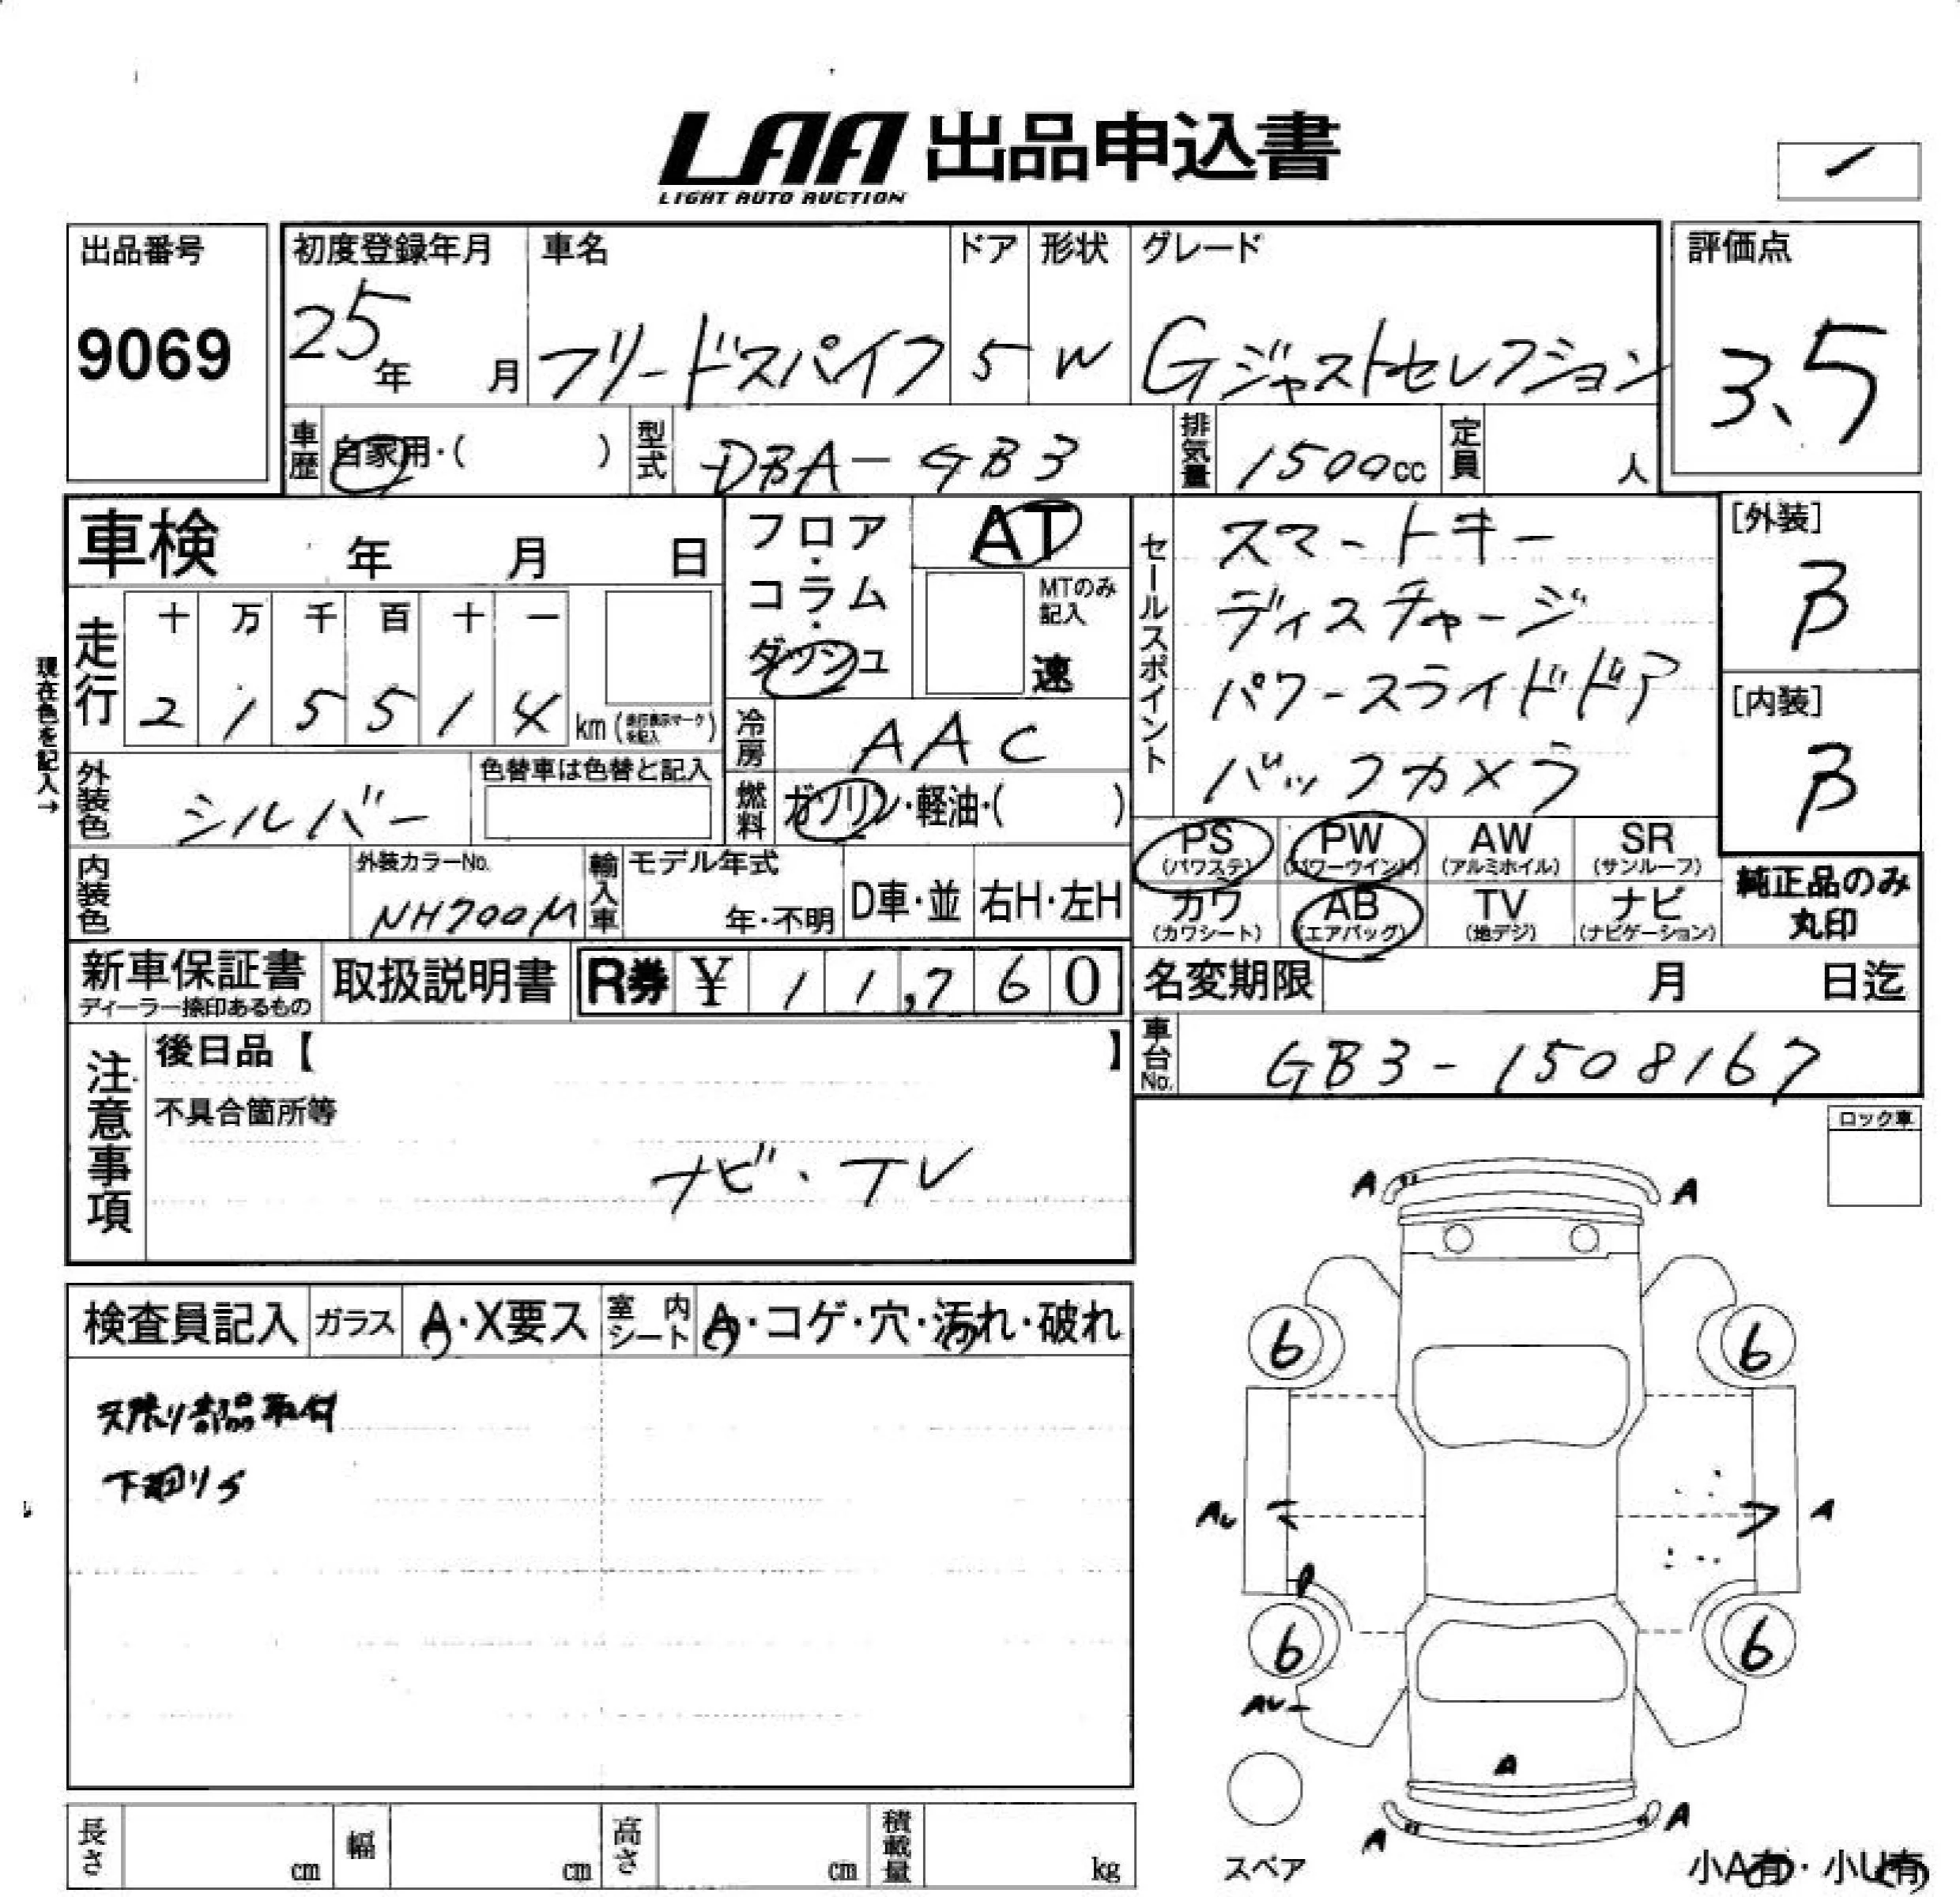 LAA 出品申込書
LIGHT AUTO AUCTION
出品番号
9069
初度登録年月
25年 月
車名
フリードスパイク
ドア
5
形状
W
グレード
Gジャストセレクション
評価点
3.5
車歴 自家用・( )
型式 DBA-GB3
排気量 1500cc
定員 人
車検 年 月 日
フロア・コラム・ダッシュ
AT
MTのみ記入
速
セールスポイント
スマートキー
ディスチャージ
パワースライドドア
バックカメラ
[外装]
B
[内装]
B
現在色を記入→
走行
十 万 千 百 十 一
2 1 5 5 1 4 km (走行表示マークを記入)
冷房 AAC
外装色 シルバー
色替車は色替と記入
燃料 ガソリン・軽油・( )
PS (パワステ)
PW (パワーウインド)
AW (アルミホイル)
SR (サンルーフ)
カワ (カワシート)
AB (エアバッグ)
TV (地デジ)
ナビ (ナビゲーション)
純正品のみ
丸印
内装色
外装カラーNo.
NH700M
輸入車
モデル年式
年・不明
D車・並
右H・左H
新車保証書
ディーラー捺印あるもの
取扱説明書
R券 ¥ 1 1,7 6 0
名変期限 月 日迄
車台No. GB3-1508167
注意事項
後日品【 】
不具合箇所等
ナビ、TV
ロック車
検査員記入
ガラス A・X要ス
室内シート A・コゲ・穴・汚れ・破れ
天張り部品取付
下廻りS
A A
6 6
AU A
6 6
AU
A
A A
スペア
長さ cm
幅 cm
高さ cm
積載量 kg
小A有・小U有